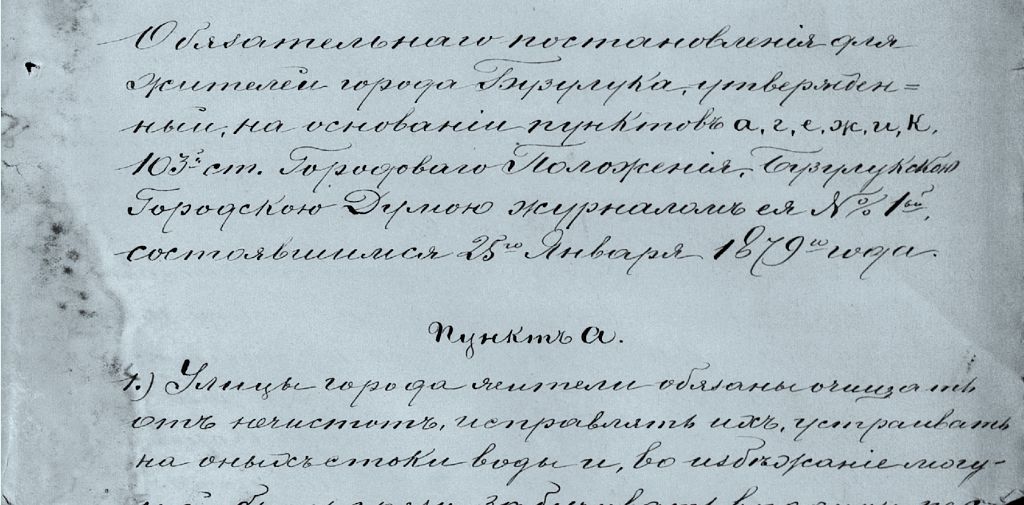 Обязательнаго постановленія для
жителей города Бузулука, утвержден=
ный, на основаніи пунктовъ а, г, е, ж, и, к,
103й ст. Городоваго Положенія, Бузулукскою
Городскою Думою журналомъ ея № 1ый,
состоявшимся 25го Января 1879го года.
Пунктъ а.
1.) Улицы города жители обязаны очищать
отъ нечистотъ, исправлять ихъ, устраивать
на оныхъ стоки воды и, во избѣжаніе могу-